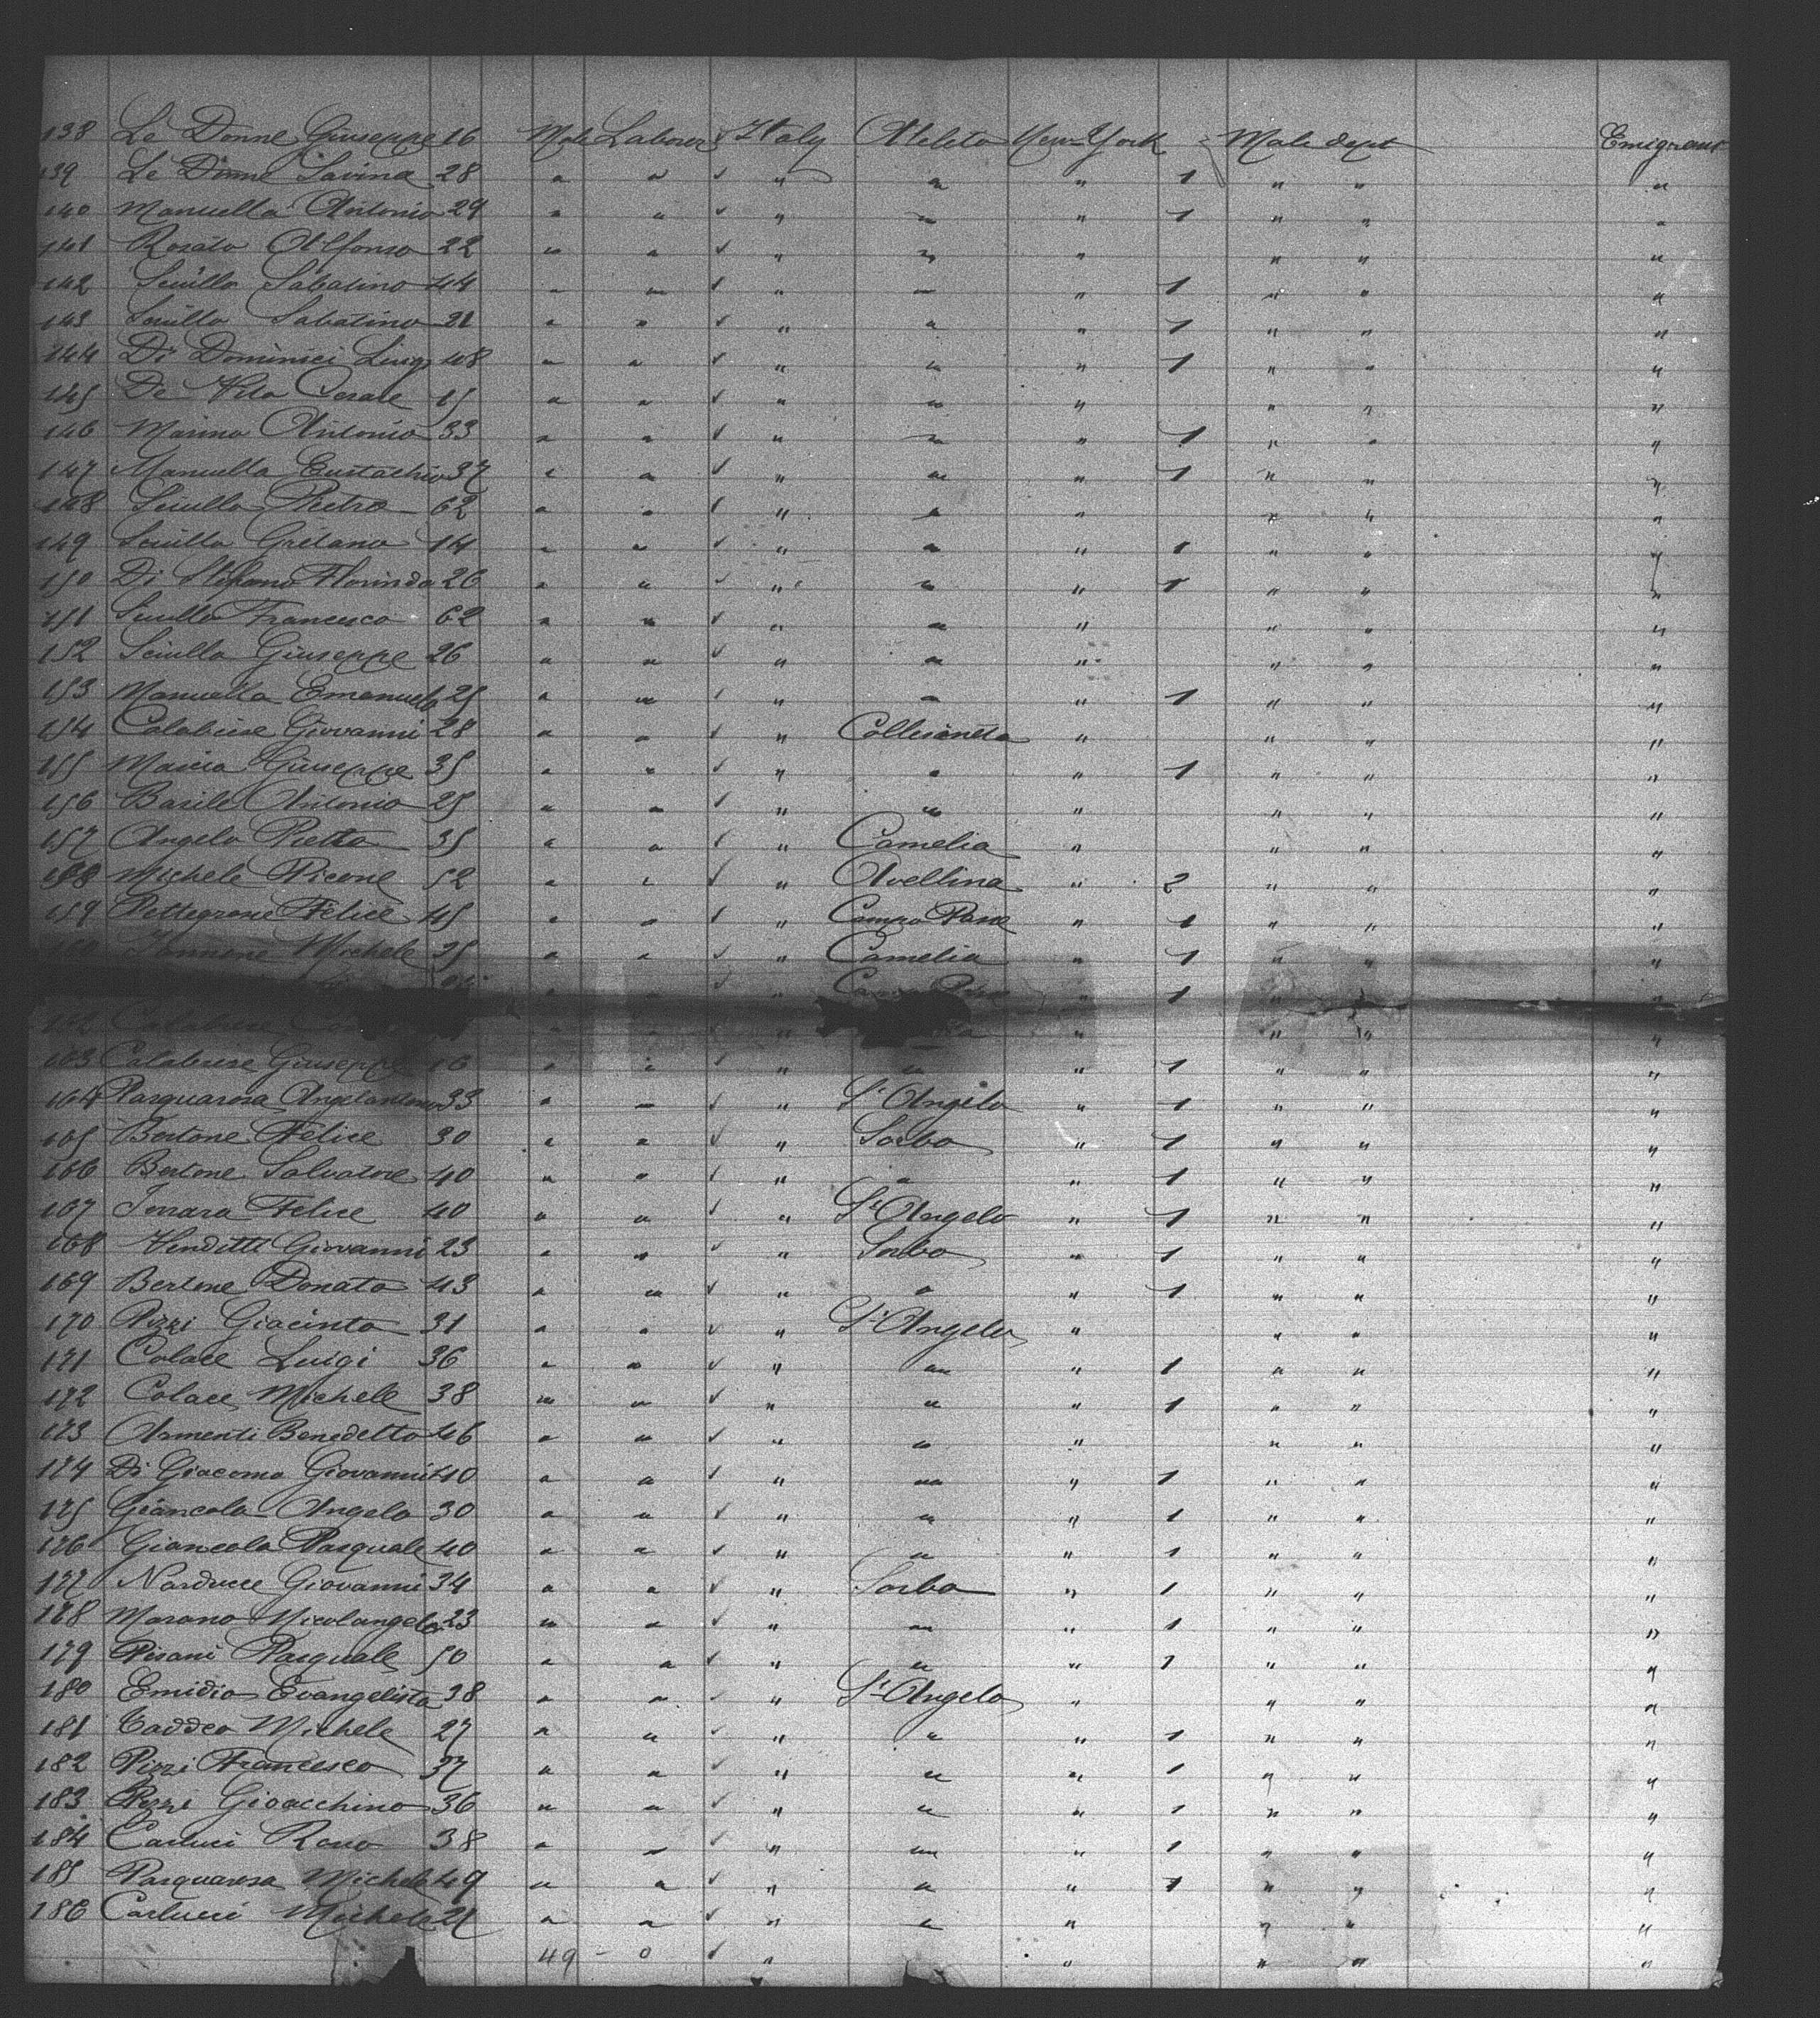 138 Le Donne Giuseppe 16 Male Laborer ✓ Italy Ateleta New-York Male dept Emigrant
139 Le Donne Savina 28 " " ✓ " " " 1 " " "
140 Manuella Antonio 29 " " ✓ " " " 1 " " "
141 Rosato Alfonso 22 " " ✓ " " " " " "
142 Sciullo Sabatino 44 " " ✓ " " " 1 " " "
143 Sciullo Sabatino 21 " " ✓ " " " 1 " " "
144 Di Dominici Luigi 48 " " ✓ " " " 1 " " "
145 De Vito Cesare 15 " " ✓ " " " " " "
146 Marino Antonio 33 " " ✓ " " " 1 " " "
147 Manuella Eustachio 37 " " ✓ " " " 1 " " "
148 Sciullo Pietro 62 " " ✓ " " " " " "
149 Sciullo Gaetano 14 " " ✓ " " " 1 " " "
150 Di Stefano Florindo 26 " " ✓ " " " 1 " " "
151 Sciullo Francesco 62 " " ✓ " " " " " "
152 Sciullo Giuseppe 26 " " ✓ " " " " " "
153 Manuella Emanuele 25 " " ✓ " " " 1 " " "
154 Calabrese Giovanni 28 " " ✓ " " " " "
155 Giuseppe 35 " " ✓ " " " 1 " " "
156 Basile Antonio 25 " " ✓ " " " " " "
157 Angelo Pietro 35 " " ✓ " Camelia " " " "
158 Michele Picone 52 " " ✓ " Avellina " 2 " " "
159 Pettegrone Felice 45 " " ✓ " Campo " 1 " " "
160 Iannone Michele 35 " " ✓ " Camelia " 1 " " "
" " ✓ " " 1 "
162 Calabrese " " " " " "
163 Calabrese Giuseppe 16 " " ✓ " " " 1 " " "
164 Pasquarosa Angelantonio 33 " " ✓ " St Angelo " 1 " " "
165 Bertone Felice 30 " " ✓ " Sorbo " 1 " " "
166 Bertone Salvatore 40 " " ✓ " " " 1 " " "
167 Felice 40 " " ✓ " St Angelo " 1 " " "
168 Venditti Giovanni 23 " " ✓ " Sorbo " 1 " " "
169 Bertone Donato 43 " " ✓ " " " 1 " " "
170 Pizzi Giacinto 31 " " ✓ " St Angelo " " " "
171 Colace Luigi 36 " " ✓ " " " 1 " " "
172 Colace Michele 38 " " ✓ " " " 1 " " "
173 Armenti Benedetto 46 " " ✓ " " " " " "
174 Di Giacomo Giovanni 40 " " ✓ " " " 1 " " "
175 Giancola Angelo 30 " " ✓ " " " 1 " " "
176 Giancola Pasquale 40 " " ✓ " " " 1 " " "
177 Narducce Giovanni 34 " " ✓ " Sorbo " 1 " " "
178 Marano Nicolangelo 23 " " ✓ " " " 1 " " "
179 Pisani Pasquale 50 " " ✓ " " " 1 " " "
180 Emidio Evangelista 38 " " ✓ " St Angelo " " " "
181 Taddeo Michele 27 " " ✓ " " " 1 " " "
182 Pizzi Francesco 37 " " ✓ " " " 1 " " "
183 Pizzi Gioacchino 36 " " ✓ " " " 1 " " "
184 Carlucci 38 " " ✓ " " " 1 " " "
185 Pasquarosa Michele 49 " " ✓ " " " 1 " " "
186 Carlucci Michele 21 " " ✓ " " " " " "
49 - 0 ✓ " " " " "